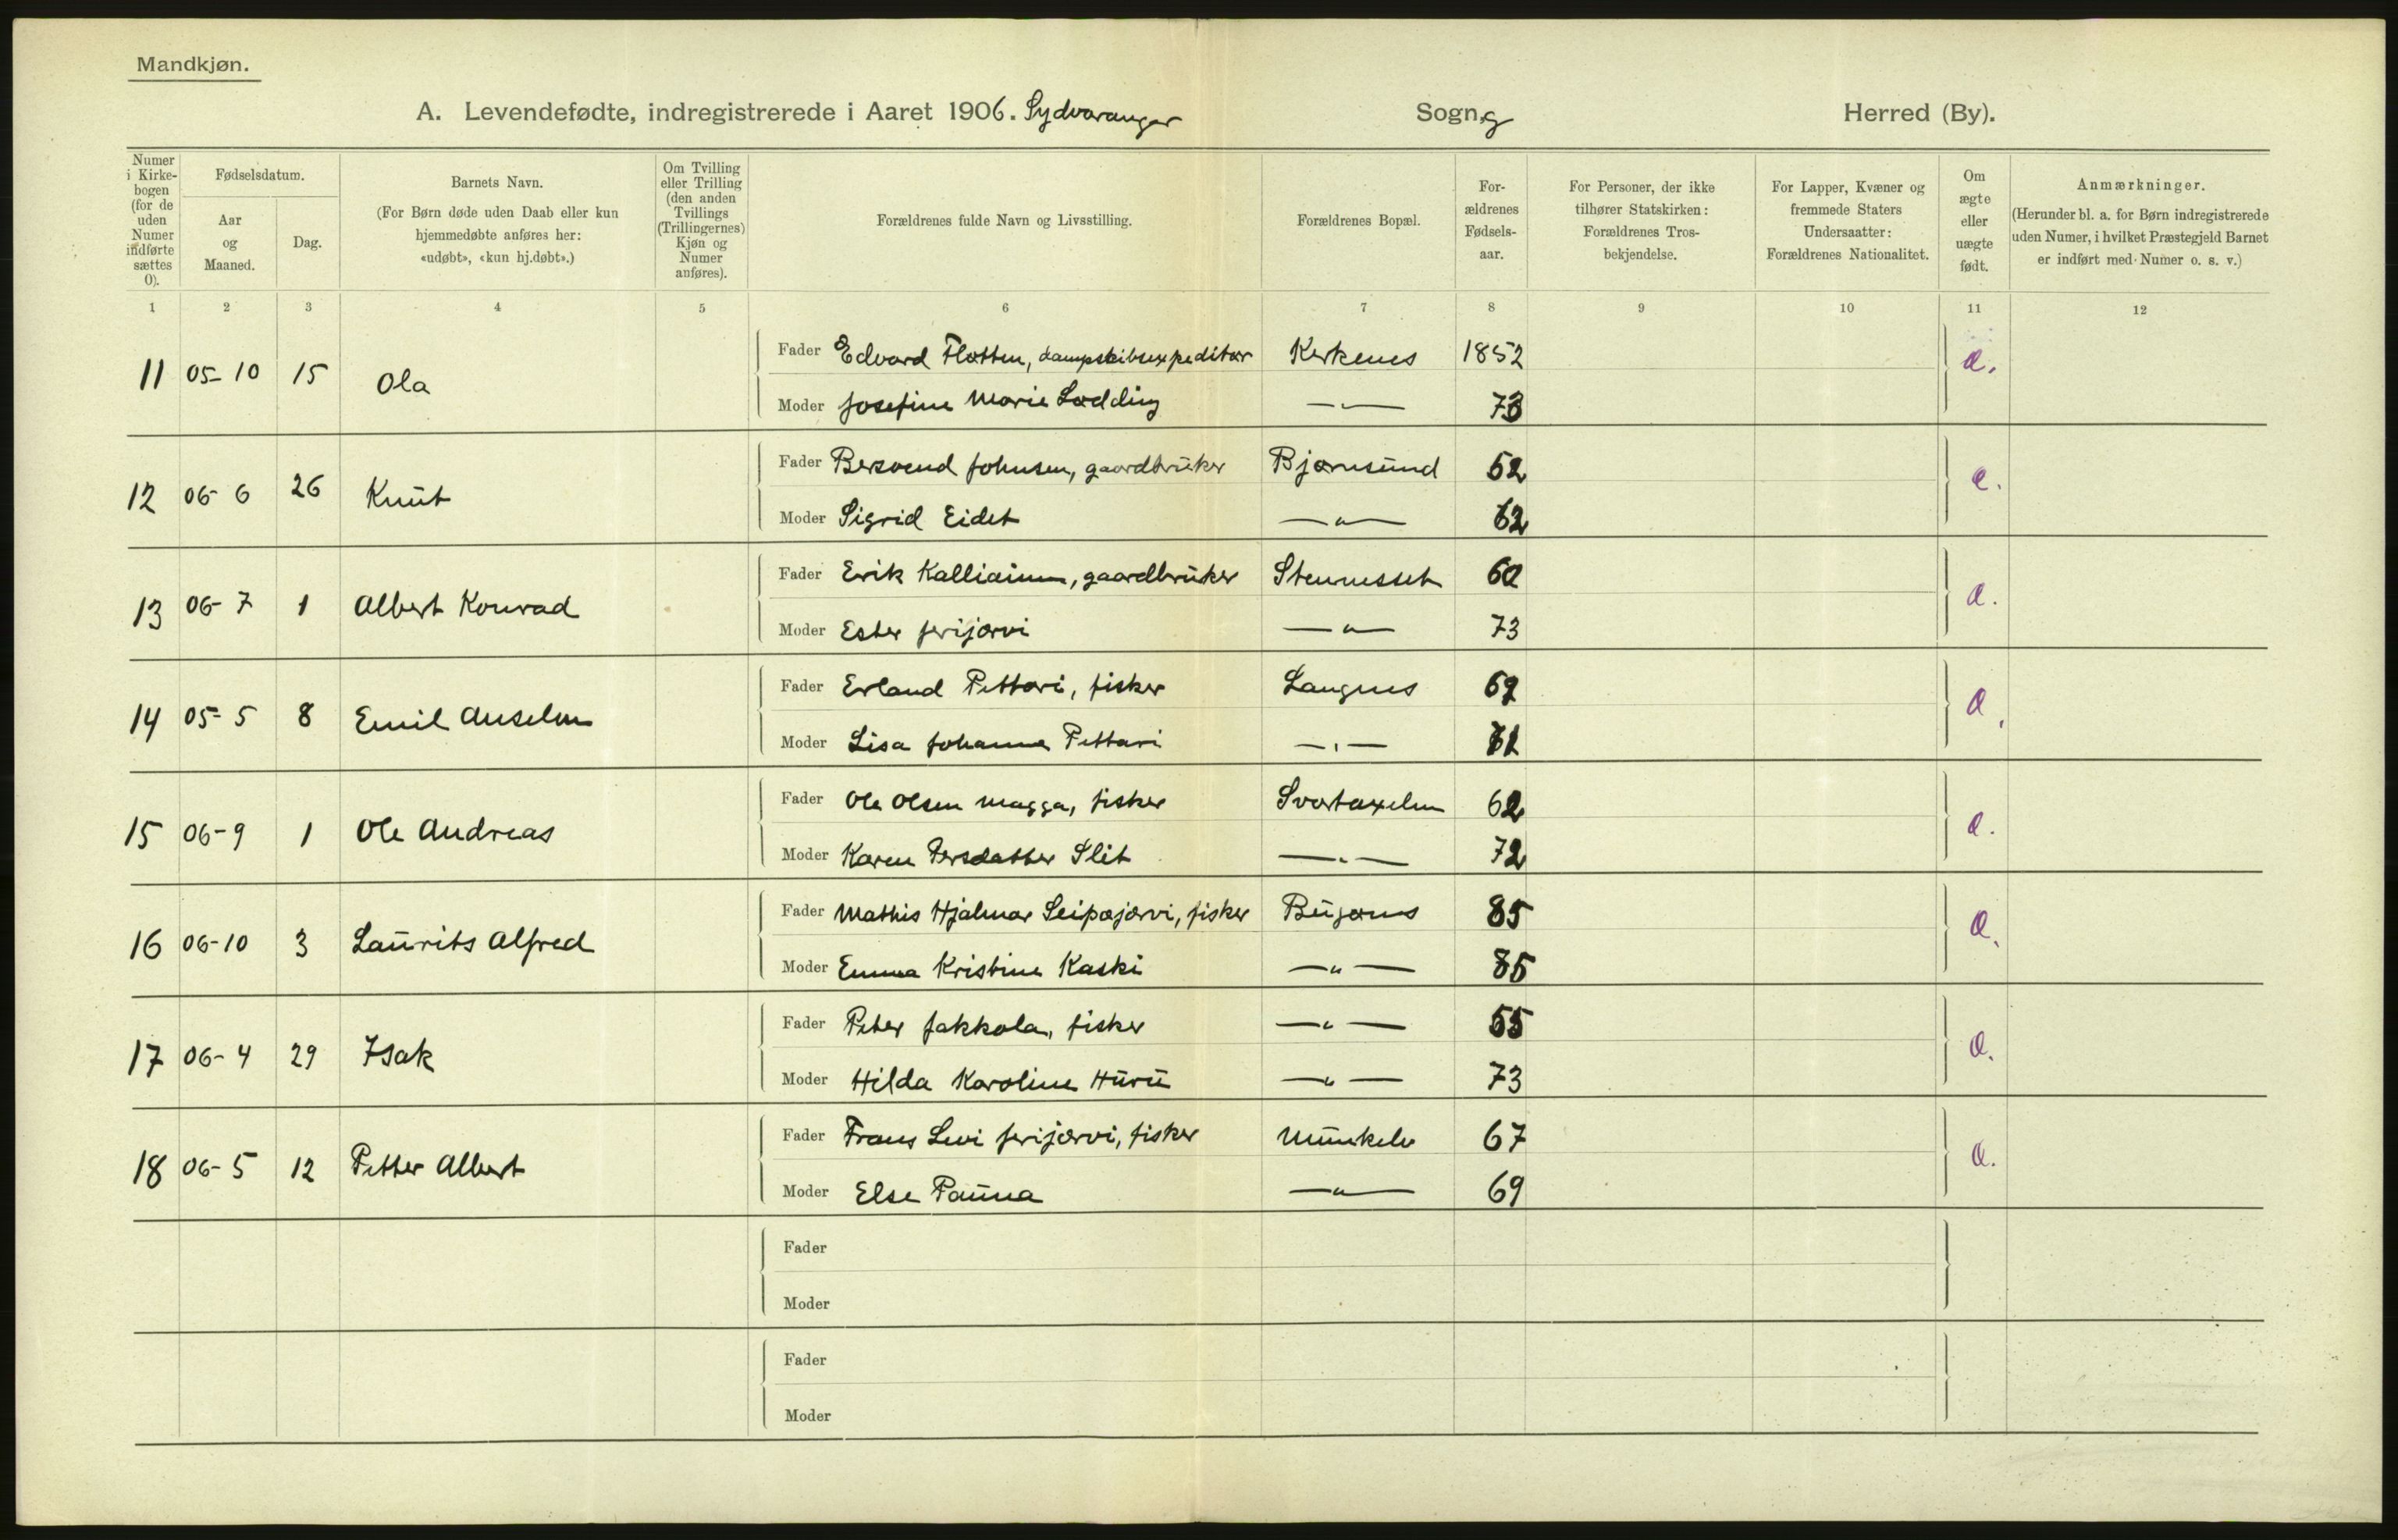 Mandkjøn.
A. Levendefødte, indregistrerede i Aaret 1906. Sydvaranger Sogn, g Herred (By).
Numer i Kirkebogen (for de uden Numer indførte sættes 0).
Fødselsdatum.
Aar og Maaned.
Dag.
Barnets Navn.
(For Børn døde uden Daab eller kun hjemmedøbte anføres her: «udøbt», «kun hj.døbt».)
Om Tvilling eller Trilling (den anden Tvillings (Trillingernes) Kjøn og Numer anføres).
Forældrenes fulde Navn og Livsstilling.
Forældrenes Bopæl.
Forældrenes Fødselsaar.
For Personer, der ikke tilhører Statskirken: Forældrenes Trosbekjendelse.
For Lapper, Kvæner og fremmede Staters Undersaatter: Forældrenes Nationalitet.
Om ægte eller uægte født.
Anmærkninger.
(Herunder bl. a. for Børn indregistrerede uden Numer, i hvilket Præstegjeld Barnet er indført med Numer o. s. v.)
1 2 3 4 5 6 7 8 9 10 11 12
11 05-10 15 Ola Fader Edvard Flotten, dampskibsexpeditør Kirkenes 1852 æ.
Moder Josefine Marie Lodding —„— 73
12 06-6 26 Knut Fader Bersvend Johnsen, gaardbruker Bjørnsund 52 æ.
Moder Sigrid Eidet —„— 62
13 06-7 1 Albert Konrad Fader Erik gaardbruker 60 æ.
Moder Ester Jerijærvi —„— 73
14 05-5 8 Emil Anselm Fader Erland Pettari, fisker Langnes æ.
Moder Lisa Johanna Pettari —„—
15 06-9 1 Ole Andreas Fader Ole Olsen Magga, fisker 62 æ.
Moder Karen Persdatter Slit —„— 72
16 06-10 3 Laurits Alfred Fader Mathis Hjalmar Seipæjærvi, fisker Bugønes 85 æ.
Moder Emma Kristine Kaski —„— 85
17 06-4 29 Isak Fader Peter Jakkola, fisker —„— 55 æ.
Moder Hilda Karoline Huru —„— 73
18 06-5 12 Petter Albert Fader Frans Levi Jerijærvi, fisker Munkelv 67 æ.
Moder Else Pauna —„— 69
Fader
Moder
Fader
Moder